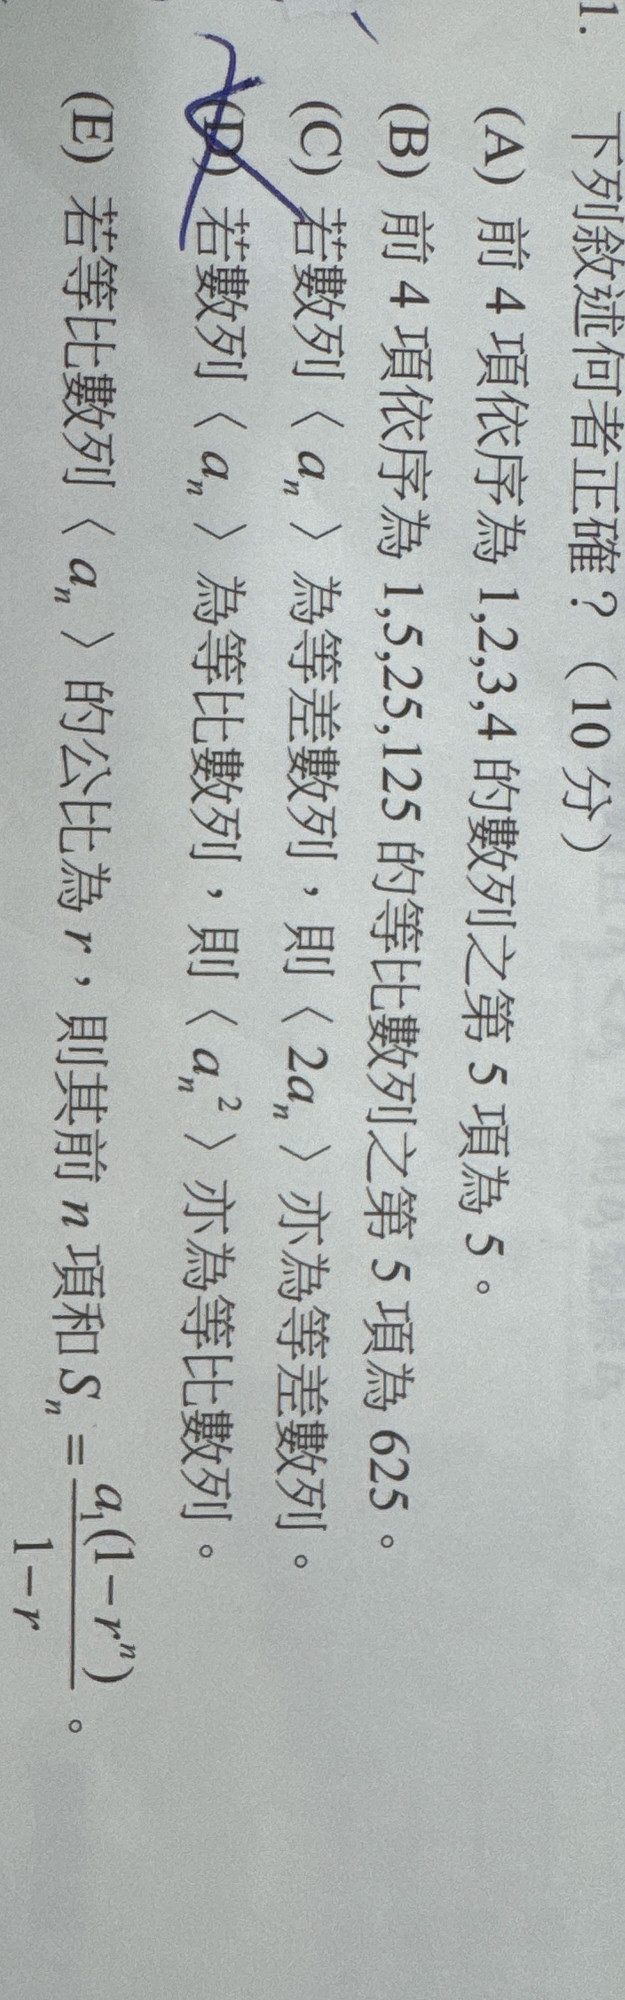 1. 下列敘述何者正確?(10 分)
(A) 前 4 項依序為 1,2,3,4 的數列之第 5 項為 5。
(B) 前 4 項依序為 1,5,25,125 的等比數列之第 5 項為 625。
(C) 若數列〈aₙ〉為等差數列,則〈2aₙ〉亦為等差數列。
(D) 若數列〈aₙ〉為等比數列,則〈aₙ²〉亦為等比數列。
(E) 若等比數列〈aₙ〉的公比為 r,則其前 n 項和 Sₙ = a₁(1−rⁿ) / 1−r。